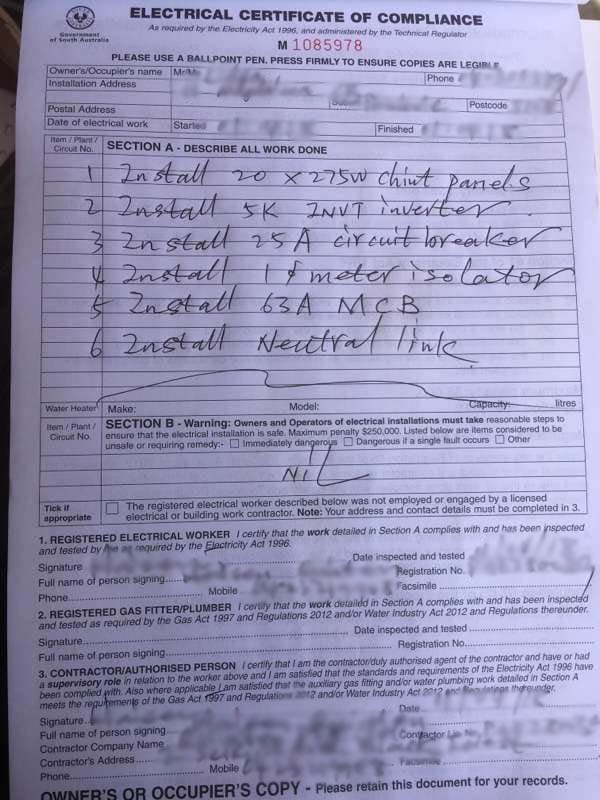 Government
of South Australia
ELECTRICAL CERTIFICATE OF COMPLIANCE
As required by the Electricity Act 1996, and administered by the Technical Regulator
M 1085978
PLEASE USE A BALLPOINT PEN. PRESS FIRMLY TO ENSURE COPIES ARE LEGIBLE
Owner's/Occupier's name Phone
Installation Address
Postal Address Postcode
Date of electrical work Started Finished
Item / Plant / Circuit No. SECTION A - DESCRIBE ALL WORK DONE
1 Install 20 x 275W chint panels
2 Install 5K INVT inverter.
3 Install 25A circuit breaker
4 Install 1 φ meter isolator
5 Install 63A MCB
6 Install Neutral link
Water Heater Make: Model: Capacity: litres
Item / Plant / Circuit No. SECTION B - Warning: Owners and Operators of electrical installations must take reasonable steps to
ensure that the electrical installation is safe. Maximum penalty $250,000. Listed below are items considered to be
unsafe or requiring remedy:- Immediately dangerous Dangerous if a single fault occurs Other
NIL
Tick if appropriate The registered electrical worker described below was not employed or engaged by a licensed
electrical or building work contractor. Note: Your address and contact details must be completed in 3.
1. REGISTERED ELECTRICAL WORKER I certify that the work detailed in Section A complies with and has been inspected
and tested by me as required by the Electricity Act 1996.
Signature Date inspected and tested
Full name of person signing Registration No.
Phone Mobile Facsimile
2. REGISTERED GAS FITTER/PLUMBER I certify that the work detailed in Section A complies with and has been inspected
and tested as required by the Gas Act 1997 and Regulations 2012 and/or Water Industry Act 2012 and Regulations thereunder.
Signature Date inspected and tested
Full name of person signing Registration No.
3. CONTRACTOR/AUTHORISED PERSON I certify that I am the contractor/duly authorised agent of the contractor and have or had
a supervisory role in relation to the worker above and I am satisfied that the standards and requirements of the Electricity Act 1996 have
been complied with. Also where applicable I am satisfied that the auxiliary gas fitting and/or water plumbing work detailed in Section A
meets the requirements of the Gas Act 1997 and Regulations 2012 and/or Water Industry Act 2012 and Regulations thereunder.
Signature Date
Full name of person signing
Contractor Company Name Contractor Lic. No.
Contractor's Address
Phone Mobile Facsimile
OWNER'S OR OCCUPIER'S COPY - Please retain this document for your records.